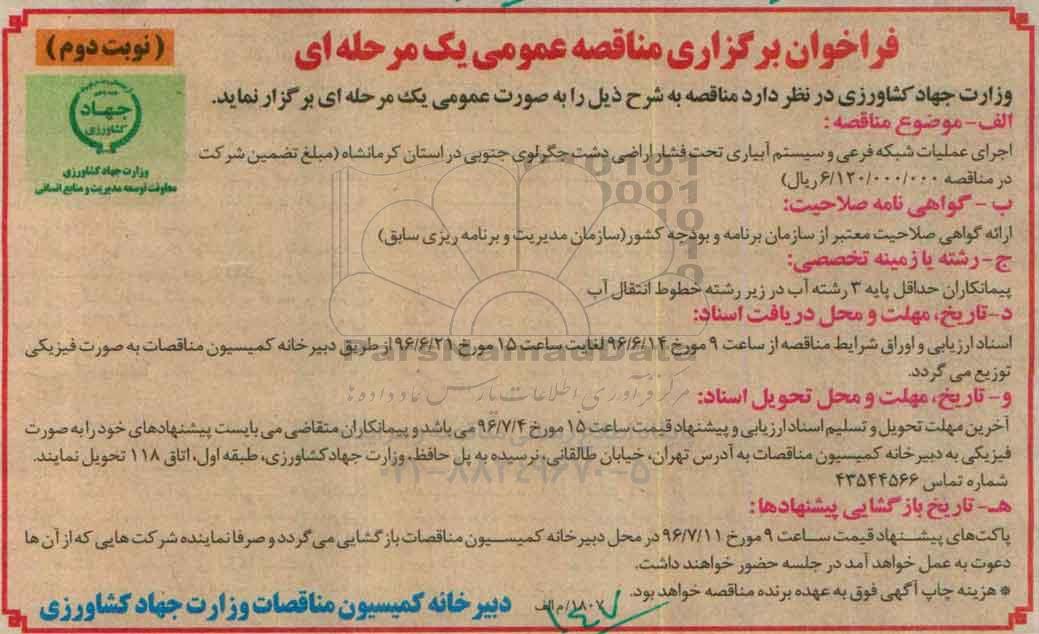 فراخوان برگزاری مناقصه عمومی یک مرحله ای
(نوبت دوم)
جهاد
کشاورزی
وزارت جهاد کشاورزی
معاونت توسعه مدیریت و منابع انسانی
وزارت جهاد کشاورزی در نظر دارد مناقصه به شرح ذیل را به صورت عمومی یک مرحله ای برگزار نماید.
الف- موضوع مناقصه:
اجرای عملیات شبکه فرعی و سیستم آبیاری تحت فشار اراضی دشت جگرلوی جنوبی در استان کرمانشاه (مبلغ تضمین شرکت
در مناقصه ۶/۱۲۰/۰۰۰/۰۰۰ ریال)
ب - گواهی نامه صلاحیت:
ارائه گواهی صلاحیت معتبر از سازمان برنامه و بودجه کشور (سازمان مدیریت و برنامه ریزی سابق)
ج- رشته یا زمینه تخصصی:
پیمانکاران حداقل پایه ۳ رشته آب در زیر رشته خطوط انتقال آب
د- تاریخ، مهلت و محل دریافت اسناد:
اسناد ارزیابی و اوراق شرایط مناقصه از ساعت ۹ مورخ ۹۶/۶/۱۴ لغایت ساعت ۱۵ مورخ ۹۶/۶/۲۱ از طریق دبیرخانه کمیسیون مناقصات به صورت فیزیکی
توزیع می گردد.
و- تاریخ، مهلت و محل تحویل اسناد:
آخرین مهلت تحویل و تسلیم اسناد ارزیابی و پیشنهاد قیمت ساعت ۱۵ مورخ ۹۶/۷/۴ می باشد و پیمانکاران متقاضی می بایست پیشنهادهای خود را به صورت
فیزیکی به دبیرخانه کمیسیون مناقصات به آدرس تهران، خیابان طالقانی، نرسیده به پل حافظ، وزارت جهاد کشاورزی، طبقه اول، اتاق ۱۱۸ تحویل نمایند.
شماره تماس ۴۳۵۴۴۵۶۶
هـ- تاریخ بازگشایی پیشنهادها:
پاکت‌های پیشنهاد قیمت ساعت ۹ مورخ ۹۶/۷/۱۱ در محل دبیرخانه کمیسیون مناقصات بازگشایی می گردد و صرفا نماینده شرکت هایی که از آن ها
دعوت به عمل خواهد آمد در جلسه حضور خواهند داشت.
* هزینه چاپ آگهی فوق به عهده برنده مناقصه خواهد بود.
دبیرخانه کمیسیون مناقصات وزارت جهاد کشاورزی
ParsNamadData
مرکز فرآوری اطلاعات پارس نماد داده ها
۰۲۱-۸۸۳۴۹۶۷۰-۵